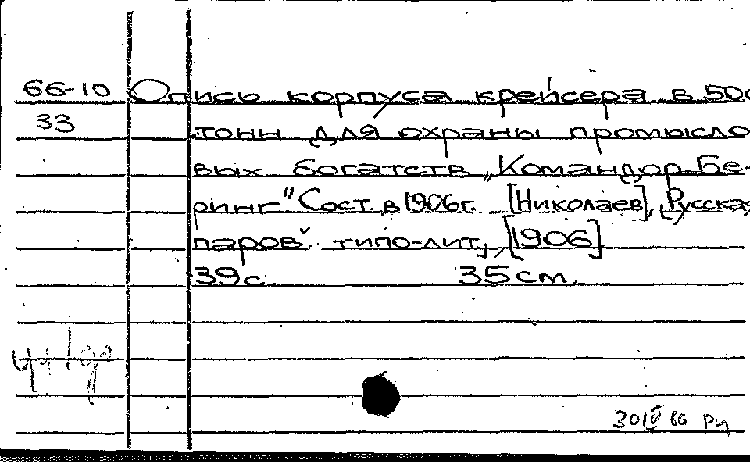 66-10 Опись корпуса крейсера в 500
33 тонн для охраны промысло
вых богатств „Командор Бе-
ринг" Сост. в 1906г. [Николаев], Русская
паров. типо-лит., [1906].
39с. 35 см.
30 IV 86